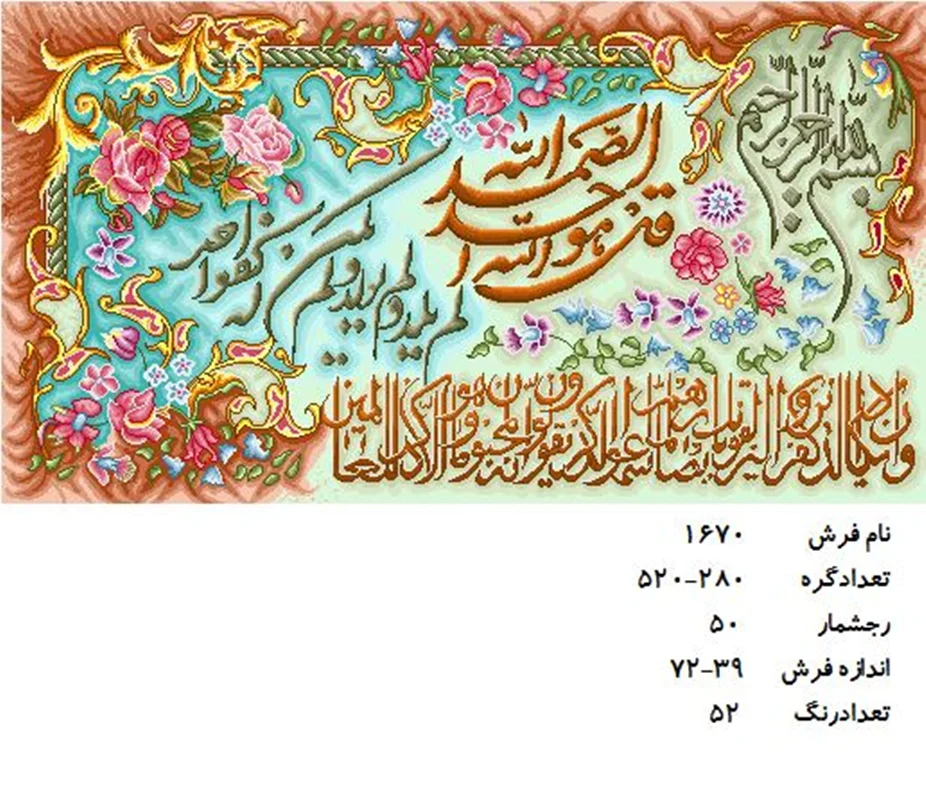 بسم الله الرحمن الرحیم
قل هو الله احد
الله الصمد
لم یلد ولم یولد ولم یکن
له کفوا احد
وان یکاد الذین کفروا لیزلقونک بابصارهم لما سمعوا الذکر و یقولون انه لمجنون و ما هو الا ذکر للعالمین
نام فرش ۱۶۷۰
تعدادگره ۵۲۰-۲۸۰
رجشمار ۵۰
اندازه فرش ۷۲-۳۹
تعدادرنگ ۵۲